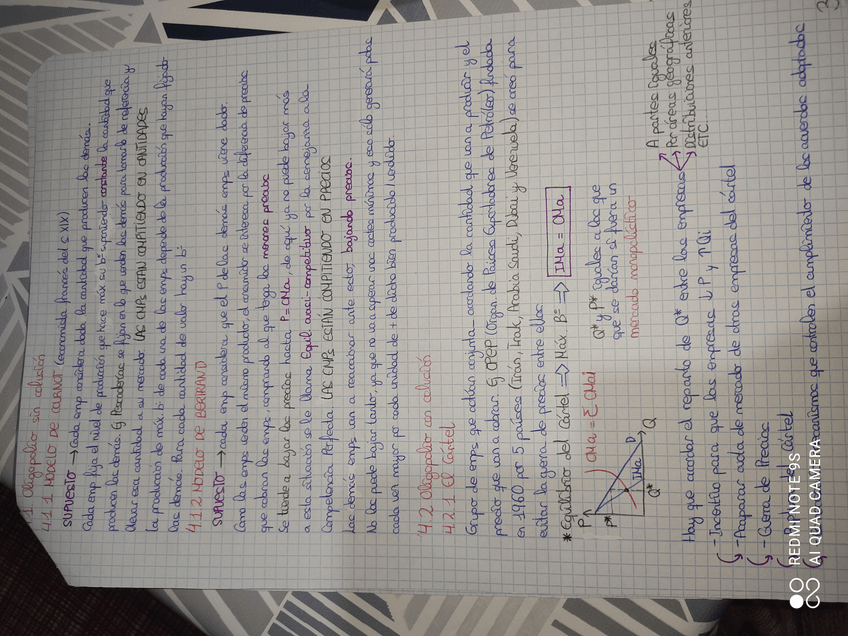 4.1 Oligopolio sin colusión
4.1.1 MODELO DE COURNOT (economista francés del s XIX)
SUPUESTO → Cada emp considera dada la cantidad que producen las demás.
Cada emp fija el nivel de producción que hace máx su bº suponiendo constante la cantidad que
producen las demás. Ej Panaderías se fijan en lo que venden las demás para tomarlo de referencia y
llevar esa cantidad a su mercado. LAS EMPS ESTÁN COMPITIENDO EN CANTIDADES
La producción de máx bº de cada una de las emps depende de la producción que hayan fijado
las demás. Para cada cantidad de valor hay un bº
4.1.2 MODELO DE BERTRAND
SUPUESTO → cada emp considera que el P de las demás emps viene dado.
Como las emps venden el mismo producto, el consumidor se interesa por la diferencia de precios
que cobran las emps, comprando al que tenga los menores precios
Se tiende a bajar los precios hasta P=CMa, de aquí ya no puede bajar más
a esta situación se le llama Equil cuasi-competitivo por la semejanza a la
Competencia Perfecta. LAS EMPS ESTÁN COMPITIENDO EN PRECIOS
Las demás emps van a reaccionar ante esto, bajando precios.
No los puede bajar tanto, ya que no va a operar unos costes mínimos y eso sólo generará pdas
cada vez mayor por cada unidad de + de dicho bien producido/vendido.
4.2 Oligopolio con colusión
4.2.1 El Cártel
Grupo de emps que actúan conjunta acordando la cantidad que van a producir y el
precio que van a cobrar. Ej OPEP (Organ de Países Exportadores de Petróleo) fundada
en 1960 por 5 países (Irán, Irak, Arabia Saudí, Dubai y Venezuela), se creó para
evitar la guerra de precios entre ellos.
* Equilibrio del Cártel => Máx Bº => IMa = CMa
P
P*
CMa = Σ CMai
IMa
D
Q*
Q
Q* y P* iguales a los que
que se darían si fuera un
mercado monopolístico
Hay que acordar el reparto de Q* entre las empresas
A partes iguales
Por áreas geográficas
Distribuciones anteriores
ETC.
- Incentivo para que las empresas ↓P y ↑Qi
- Acaparar cuota de mercado de otras empresas del cártel
- Guerra de Precios
del Cártel
mecanismos que controlen el cumplimiento de los acuerdos adoptados
3
REDMI NOTE 9S
AI QUAD CAMERA